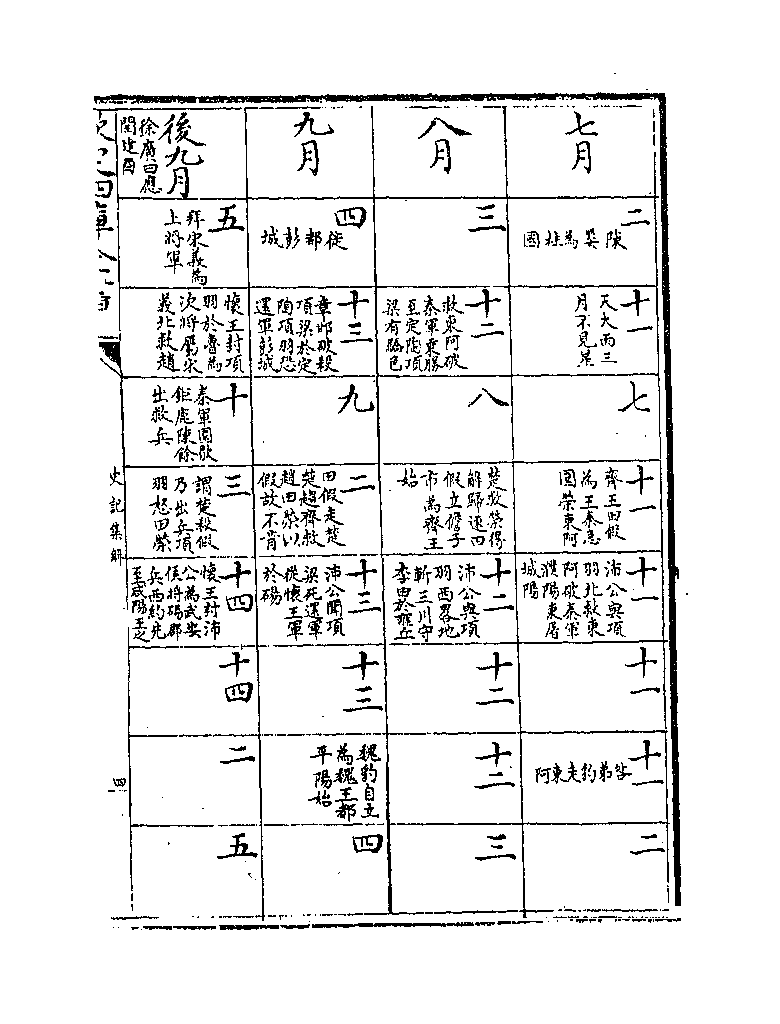 七月
二
陳嬰為柱國
十一
天大雨三
月不見星
七
十一
齊王田假
為王秦急
圍榮東阿
十一
沛公與項
羽北救東
阿破秦軍
濮陽東屠
城陽
十一
十一
咎弟豹走東阿
二
八月
三
十二
救東阿破
秦軍乘勝
至定陶項
梁有驕色
八
楚救榮得
解歸逐田
假立儋子
市為齊王
始
十二
沛公與項
羽西略地
斬三川守
李由於雍丘
十二
十二
三
九月
四
徙都彭城
十三
章邯破殺
項梁於定
陶項羽恐
還軍彭城
九
二
田假走楚
楚趨齊救
趙田榮以
假故不肯
十三
沛公聞項
梁死還軍
從懷王軍
於碭
十三
魏豹自立
為魏王都
平陽始
四
後九月
徐廣曰應
閏建酉
五
拜宋義為
上將軍
懷王封項
羽於魯為
次將屬宋
義北救趙
十
秦軍圍歇
鉅鹿陳餘
出救兵
三
謂楚殺假
乃出兵項
羽怒田榮
十四
懷王封沛
公為武安
侯將碭郡
兵西約先
至咸陽王之
十四
二
五
欽定四庫全書
史記集解
四